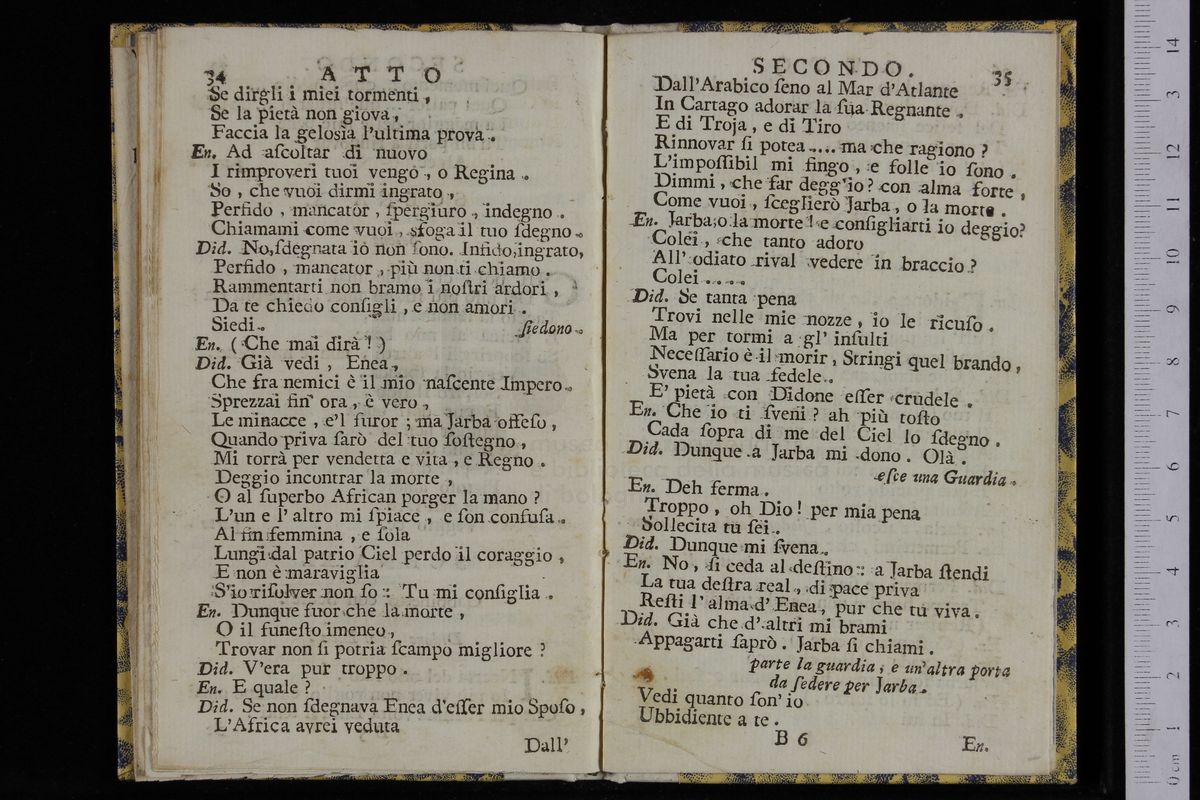 34 ATTO
Se dirgli i miei tormenti,
Se la pietà non giova,
Faccia la gelosia l'ultima prova.
En. Ad aſcoltar di nuovo
I rimproveri tuoi vengo, o Regina.
So, che vuoi dirmi ingrato,
Perfido, mancator, ſpergiuro, indegno.
Chiamami come vuoi, sfoga il tuo ſdegno.
Did. No, ſdegnata io non ſono. Infido, ingrato,
Perfido, mancator, più non ti chiamo.
Rammentarti non bramo i noſtri ardori,
Da te chiedo conſigli, e non amori.
Siedi. ſiedono.
En. (Che mai dirà!)
Did. Già vedi, Enea,
Che fra nemici è il mio naſcente Impero.
Sprezzai fin' ora, è vero,
Le minacce, e'l furor; ma Jarba offeſo,
Quando priva ſarò del tuo ſoſtegno,
Mi torrà per vendetta e vita, e Regno.
Deggio incontrar la morte,
O al ſuperbo African porger la mano?
L'un e l'altro mi ſpiace, e ſon confuſa.
Al fin femmina, e ſola
Lungi dal patrio Ciel perdo il coraggio,
E non è maraviglia
S'io riſolver non ſo: Tu mi conſiglia.
En. Dunque fuor che la morte,
O il funeſto imeneo,
Trovar non ſi potria ſcampo migliore?
Did. V'era pur troppo.
En. E quale?
Did. Se non ſdegnava Enea d'eſſer mio Spoſo,
L'Africa avrei veduta
Dall'
SECONDO. 35
Dall'Arabico ſeno al Mar d'Atlante
In Cartago adorar la ſua Regnante.
E di Troja, e di Tiro
Rinnovar ſi potea..... ma che ragiono?
L'impoſſibil mi fingo, e folle io ſono.
Dimmi, che far degg'io? con alma forte,
Come vuoi, ſceglierò Jarba, o la morte.
En. Jarba, o la morte! e conſigliarti io deggio?
Colei, che tanto adoro
All' odiato rival vedere in braccio?
Colei.....
Did. Se tanta pena
Trovi nelle mie nozze, io le ricuſo.
Ma per tormi a gl' inſulti
Neceſſario è il morir, Stringi quel brando,
Svena la tua fedele.
E' pietà con Didone eſſer crudele.
En. Che io ti ſveni? ah più toſto
Cada ſopra di me del Ciel lo ſdegno.
Did. Dunque a Jarba mi dono. Olà.
eſce una Guardia.
En. Deh ferma.
Troppo, oh Dio! per mia pena
Sollecita tu ſei.
Did. Dunque mi ſvena.
En. No, ſi ceda al deſtino: a Jarba ſtendi
La tua deſtra real, di pace priva
Reſti l'alma d'Enea, pur che tu viva.
Did. Già che d'altri mi brami
Appagarti ſaprò. Jarba ſi chiami.
parte la guardia, e un'altra porta
da ſedere per Jarba.
Vedi quanto ſon' io
Ubbidiente a te.
B 6 En.
0 cm 1 2 3 4 5 6 7 8 9 10 11 12 13 14